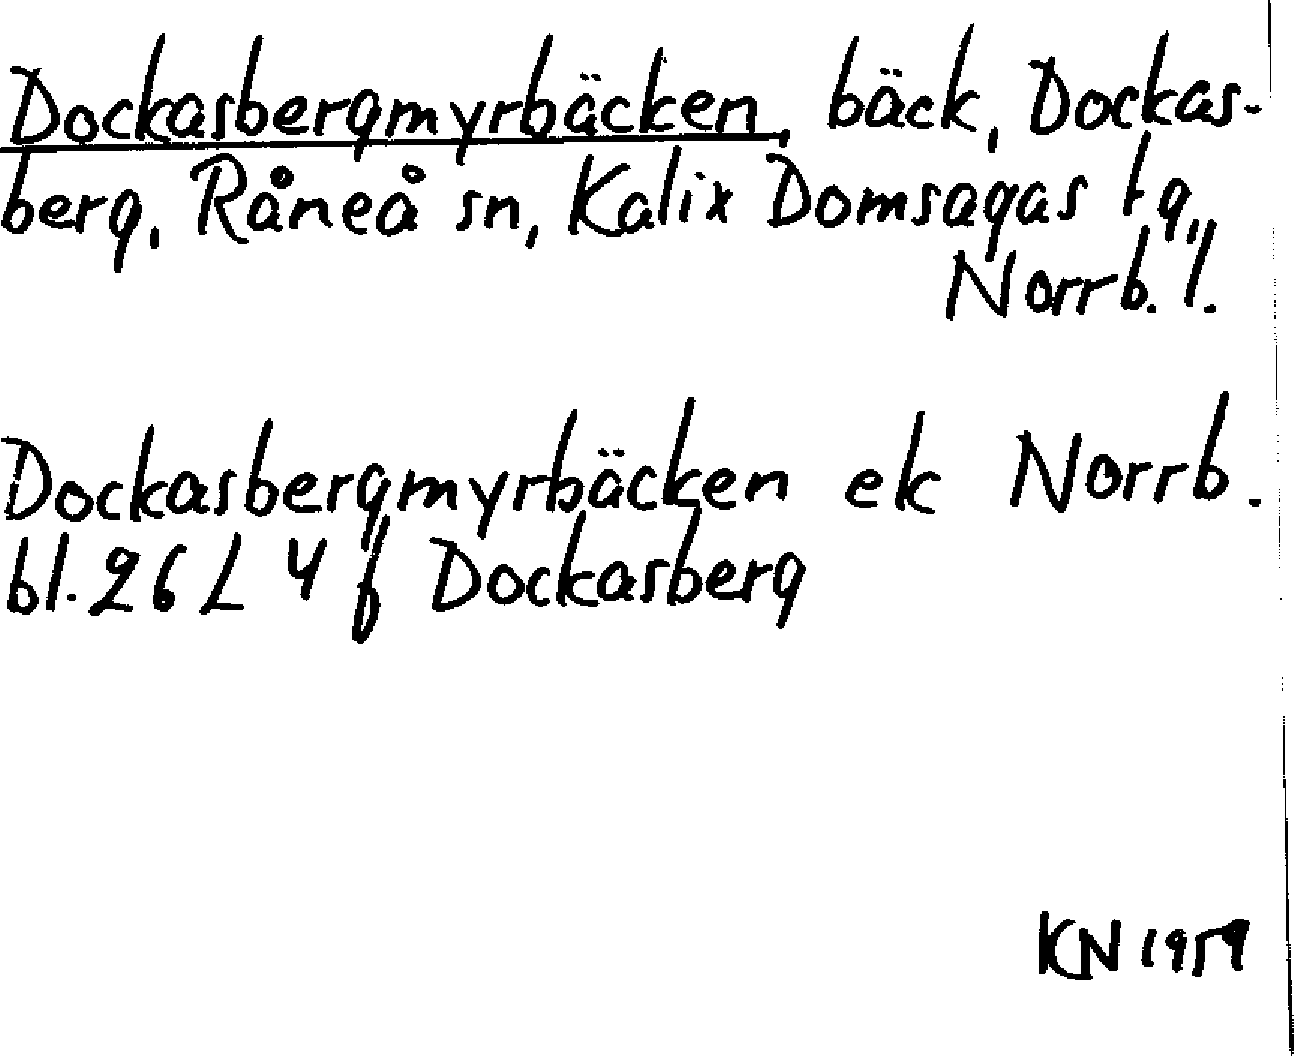 Dockasbergmyrbäcken, bäck, Dockas-
berg, Råneå sn, Kalix Domsagas tg,
Norrb. l.
Dockasbergmyrbäcken ek Norrb.
bl. 26 L 4 f Dockasberg
KN 1959